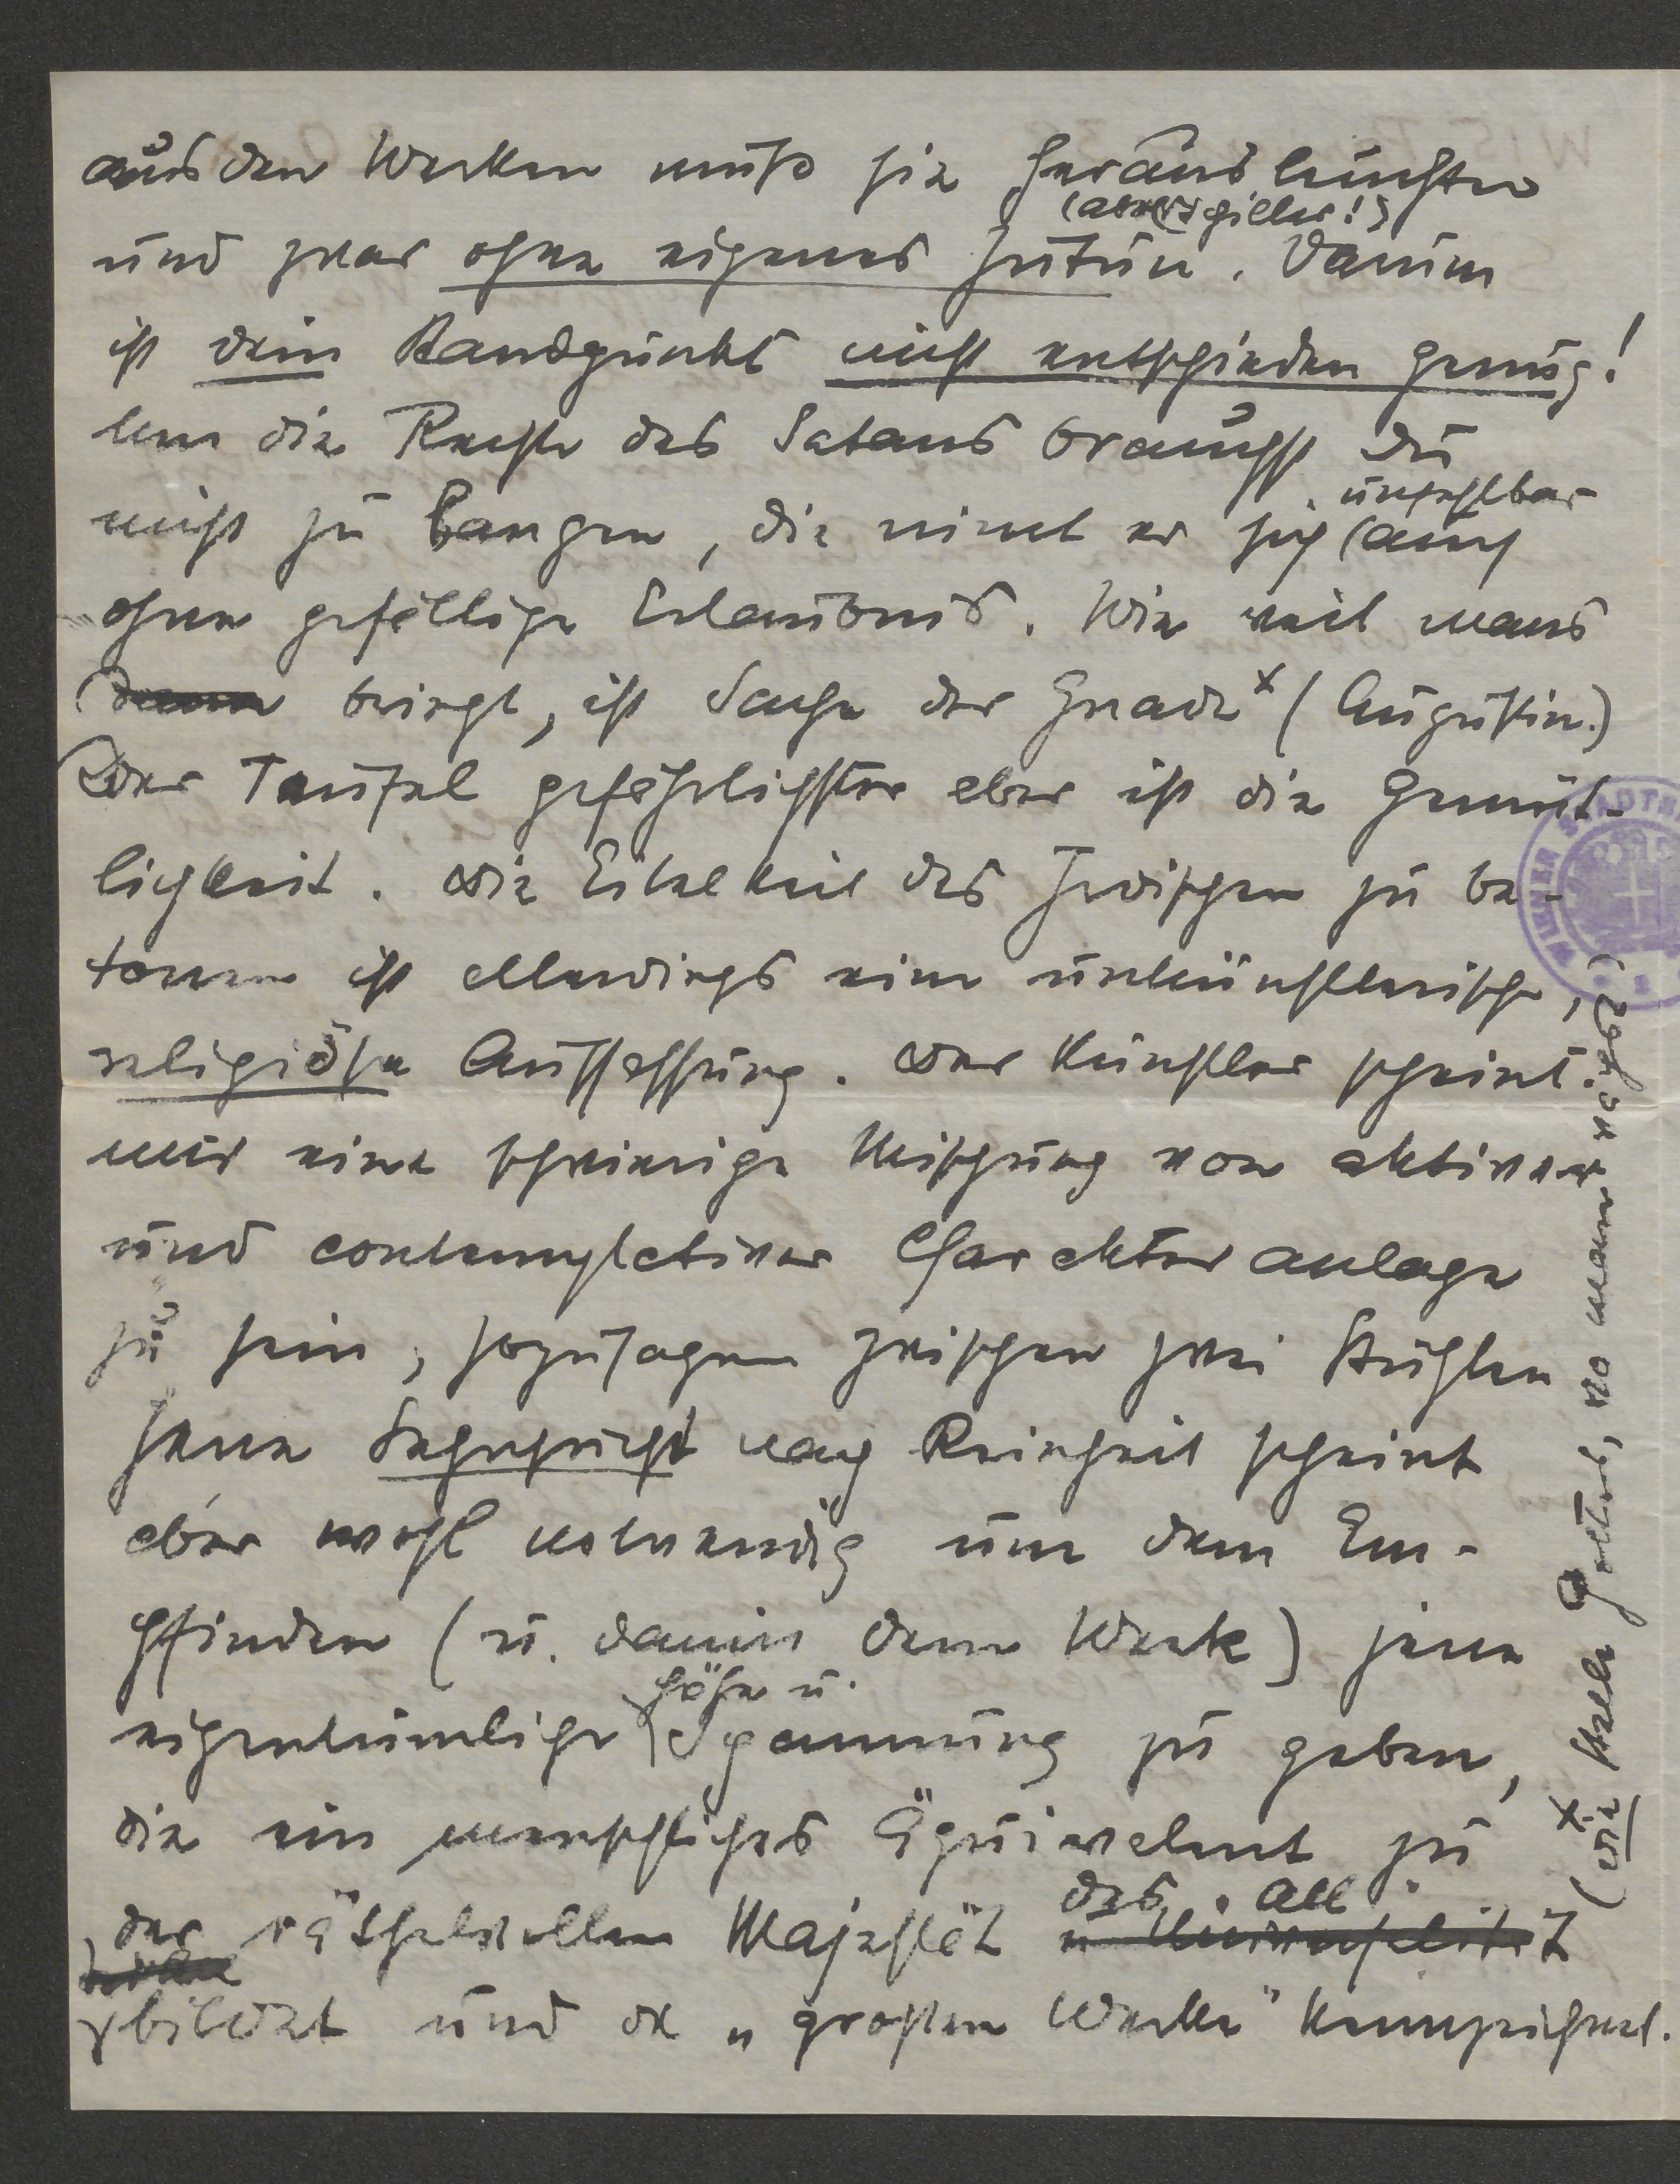 aus den Werken muß sie herausleuchten
(aber Schiller!)
und zwar ohne eigenes Zutun. Darum
ist dein Standpunkt nicht entschieden genug!
Um die Rechte des Satans brauchst Du
unfehlbar
nicht zu bangen, die nimt er sich (auch
ohne gefällige Erlaubnis. Wie weit mans
bringt, ist Sache der Gnade x (Augustin.)
Der Teufel gefährlichster aber ist die Gemüt-
lichkeit. Die Eitelkeit des Irdischen zu be-
tonen ist allerdings eine unkünstlerische,
religiöse Auffassung. Der Künstler scheint
mir eine schwierige Mischung von aktiver
und contemplativer Charakteranlage
zu sein, sozusagen zwischen zwei Stühlen
Jene Sehnsucht nach Reinheit scheint
aber wohl notwendig um dem Em-
pfinden (u. darin dem Werk) jene
Höhe u.
eigentümliche Spannung zu geben,
die ein menschliches Äquivalent zu
des All
der rätselvollen Majestät
bildet und die "großen Werke" kennzeichnet.
(x die Stelle Gottes, wo man
WIENER STADTB